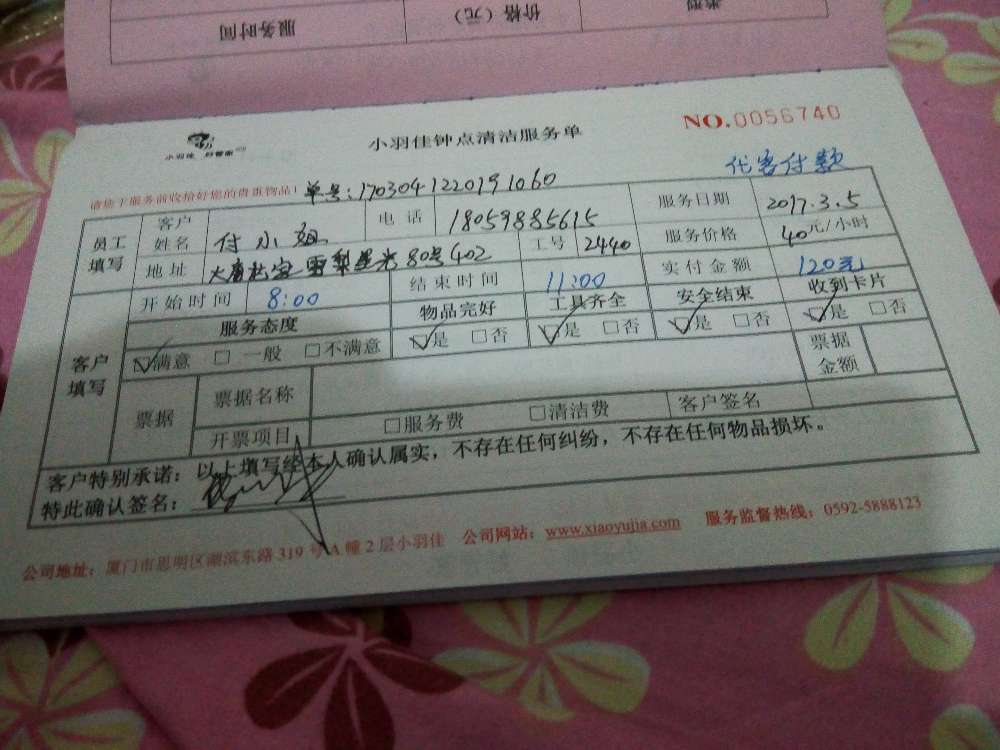 服务时间 价格（元） 类型
NO.0056740
小羽佳 好管家
小羽佳钟点清洁服务单
代客付款
请您于服务前收拾好您的贵重物品！ 单号:1703041220191060
员工填写 客户姓名 付小姐 电话 18059885615 服务日期 2017.3.5
地址 80号402 工号 2440 服务价格 40元/小时
客户填写 开始时间 8:00 结束时间 11:00 实付金额 120元
服务态度 物品完好 工具齐全 安全结束 收到卡片
☑满意 □一般 □不满意 ☑是 □否 ☑是 □否 ☑是 □否 ☑是 □否
票据 票据名称 票据金额
开票项目 □服务费 □清洁费 客户签名
客户特别承诺：以上填写经本人确认属实，不存在任何纠纷，不存在任何物品损坏。
特此确认签名：
公司地址：厦门市思明区湖滨东路319号A幢2层小羽佳 公司网站：www.xiaoyujia.com 服务监督热线：0592-5888123